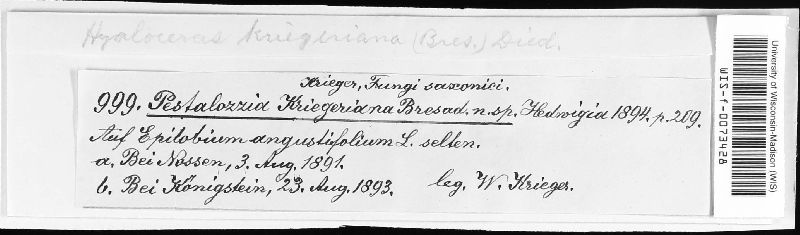 Hyaloceras kriegeriana (Bres.) Died.
Krieger, Fungi saxonici.
999. Pestalozzia Kriegeriana Bresad. n. sp. Hedwigia 1894. p. 209.
Auf Epilobium angustifolium L. selten.
a. Bei Nossen, 3. Aug. 1891.
b. Bei Königstein, 23. Aug. 1893. leg. W. Krieger.
University of Wisconsin-Madison (WIS)
WIS-f-0073428